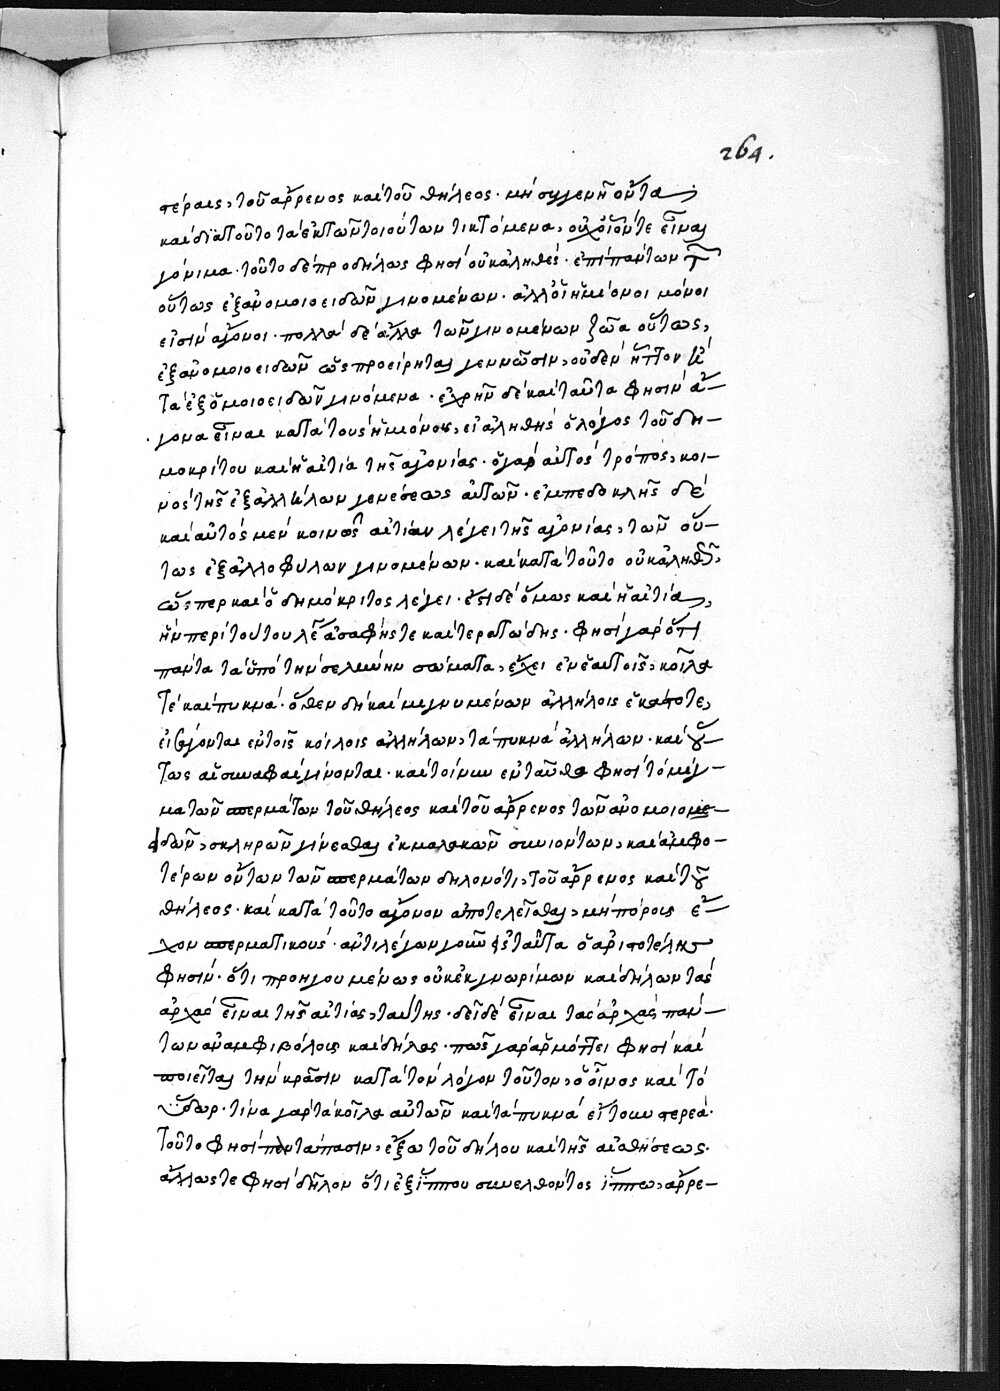 264.
στέραις, τοῦ ἄρρενος καὶ τοῦ θήλεος· μὴ συγγενῆ ὄντα
καὶ διὰ τοῦτο τὰ ἐκ τῶν τοιούτων τικτόμενα, οὐχ οἷόν τε εἶναι
γόνιμα· τοῦτο δὲ προδήλως φησὶ οὐκ ἀληθές· ἐπὶ πάντων τῶν
οὕτως ἐξ ἀνομοιοειδῶν γινομένων· ἀλλ' οἱ ἡμίονοι μόνοι
εἰσὶν ἄγονοι· πολλὰ δὲ ἄλλα τῶν γινομένων ζῶα οὕτως,
ἐξ ἀνομοιοειδῶν ὡς προείρηται γεννῶσιν, οὐδὲν ἧττον ἢ
τὰ ἐξ ὁμοιοειδῶν γινόμενα· ἐχρῆν δὲ καὶ ταῦτα φησιν ἄ-
γονα εἶναι κατὰ τοὺς ἡμιόνους, εἰ ἀληθὴς ὁ λόγος τοῦ δη-
μοκρίτου καὶ ἡ αἰτία τῆς ἀγονίας· ὁ γὰρ αὐτὸς τρόπος, κοι-
νὸς τῆς ἐξ ἀλλήλων γενέσεως αὐτῶν· ἐμπεδοκλῆς δὲ
καὶ αὐτὸς μὲν κοινῶς αἰτίαν λέγει τῆς ἀγονίας, τῶν οὕ-
τως ἐξ ἀλλοφύλων γινομένων· καὶ κατὰ τοῦτο οὐκ ἀληθῆ,
ὥσπερ καὶ ὁ δημόκριτος λέγει· ἔστι δὲ ὅμως καὶ ἡ αἰτία,
ἣν περὶ τούτου λέγει ἀσαφής τε καὶ τερατώδης· φησὶ γὰρ ὅτι
πάντα τὰ ὑπὸ τὴν σελήνην σώματα, ἔχει ἐν ἑαυτοῖς, κοῖλα
τὲ καὶ πυκνά· ὅθεν δὴ καὶ μιγνυμένων ἀλλήλοις ἑκάστοτε,
εἰσίονται ἐν τοῖς κοίλοις ἀλλήλων, τὰ πυκνὰ ἀλλήλων· καὶ οὕ-
τως αἱ συναφαὶ γίνονται· καὶ τοίνυν ἐνταῦθα φησὶ τὸ μίγ-
μα τῶν σπερμάτων τοῦ θήλεος καὶ τοῦ ἄρρενος τῶν ἀνομοιομε-
δῶν, σκληρῶν γίνεσθαι ἐκ μαλακῶν συνιόντων, καὶ ἀμφο-
τέρων ὄντων τῶν σπερμάτων δηλονότι, τοῦ ἄρρενος καὶ τοῦ
θήλεος· καὶ κατὰ τοῦτο ἄγονον ἀποτελεῖσθαι, μὴ πόρους ἔ-
χον σπερματικούς· ἀντιλέγων γοῦν ταῦτα ὁ ἀριστοτέλης
φησίν· ὅτι προηγουμένως οὐκ ἐκ γνωρίμων καὶ δήλων τὰς
ἀρχὰς εἶναι τῆς αἰτίας, ταύτης· δεῖ δὲ εἶναι τὰς ἀρχὰς παν-
των ἀναμφιβόλους καὶ δήλας· πῶς γὰρ ἁρμόττει φησὶ καὶ
ποιεῖται τὴν κράσιν κατὰ τὸν λόγον τοῦτον, ὁ οἶνος καὶ τὸ
ὕδωρ· τίνα γὰρ τὰ κοῖλα αὐτῶν καὶ τὰ πυκνὰ εἴτουν στερεά·
τοῦτο φησὶ παντάπασιν, ἔξω τοῦ δήλου καὶ τῆς αἰσθήσεως·
ἄλλως τε φησὶ δῆλον ὅτι ἐξ ἵππου συνελθόντος ἵππω, ἄρρε-